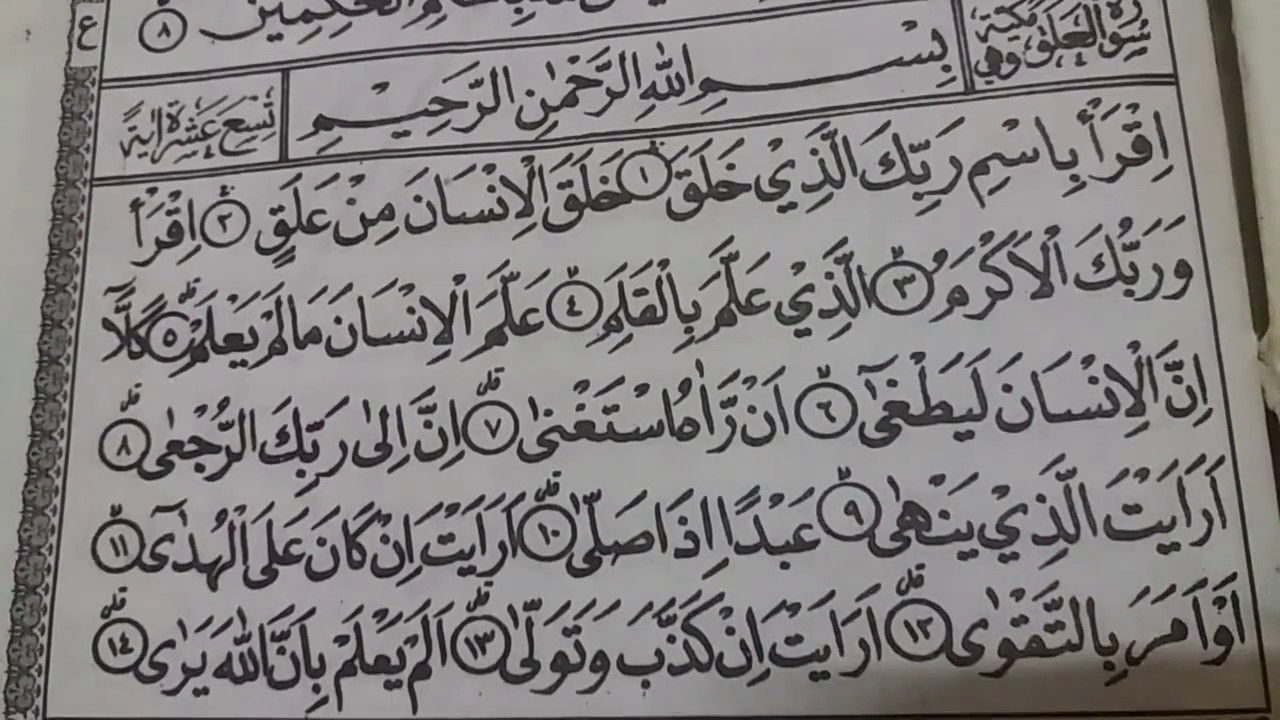 الْحٰكِمِيْنَ ۸
ع
سُوْرَةُ الْعَلَقِ مَكِّيَّةٌ وَهِيَ
بِسْمِ اللهِ الرَّحْمٰنِ الرَّحِيْمِ
تِسْعَ عَشْرَةَ اٰيَةً
اِقْرَأْ بِاسْمِ رَبِّكَ الَّذِيْ خَلَقَ ۱ خَلَقَ الْاِنْسَانَ مِنْ عَلَقٍ ۲ اِقْرَأْ
وَرَبُّكَ الْاَكْرَمُ ۳ الَّذِيْ عَلَّمَ بِالْقَلَمِ ۴ عَلَّمَ الْاِنْسَانَ مَا لَمْ يَعْلَمْ ۵ كَلَّآ
اِنَّ الْاِنْسَانَ لَيَطْغٰٓى ۶ اَنْ رَّاٰهُ اسْتَغْنٰى ۷ اِنَّ اِلٰى رَبِّكَ الرُّجْعٰى ۸
اَرَاَيْتَ الَّذِيْ يَنْهٰى ۹ عَبْدًا اِذَا صَلّٰى ۱۰ اَرَاَيْتَ اِنْ كَانَ عَلَى الْهُدٰٓى ۱۱
اَوْ اَمَرَ بِالتَّقْوٰى ۱۲ اَرَاَيْتَ اِنْ كَذَّبَ وَتَوَلّٰى ۱۳ اَلَمْ يَعْلَمْ بِاَنَّ اللهَ يَرٰى ۱۴